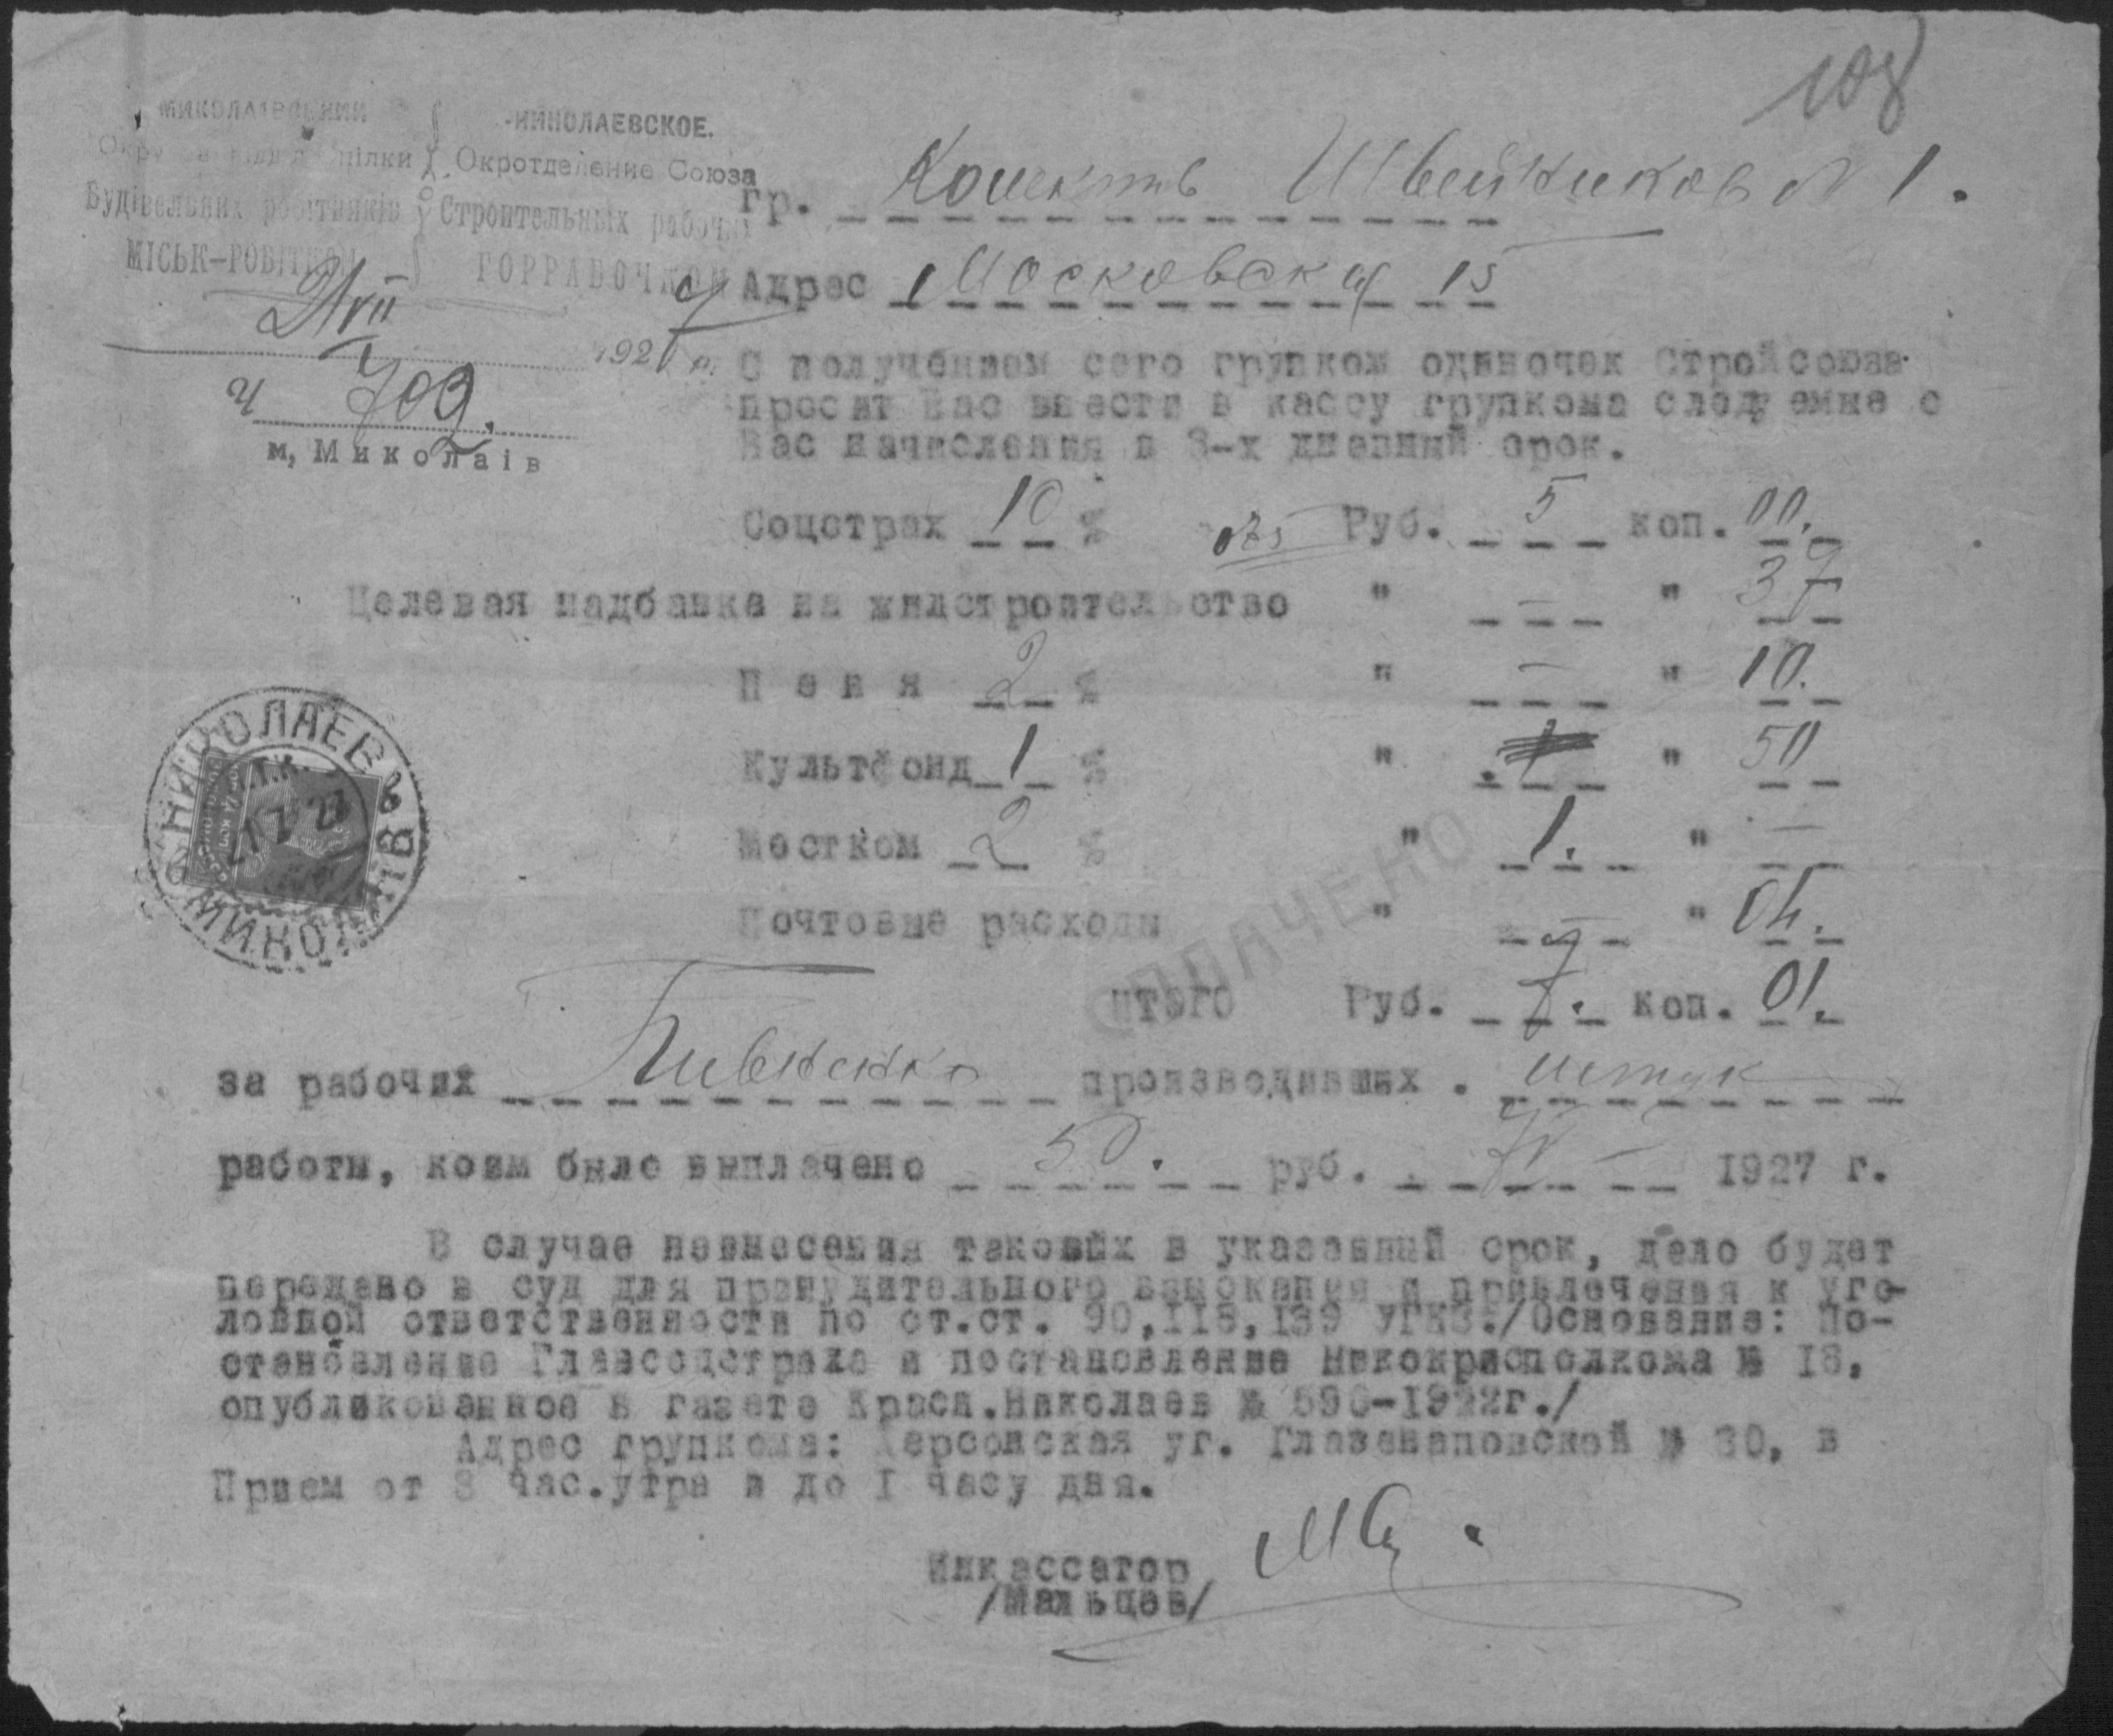 108
МИКОЛАЇВСЬКИЙ
-НИКОЛАЕВСКОЕ.
спілки
Окротделение Союза
Будівельних робітників
Строительных рабочих
МІСЬК-РОБІТКОМ
ГОРРАБОЧКОМ
гр. Колектив Швейников № 1.
Адрес Московская 15
21/VII 1927 р.
Ч 709.
м, Миколаів
С получением сего групком одиночек Стройсоюза
просит Вас внести в кассу групкома следуемые с
Вас начисления в 3-х дневный срок.
Соцстрах 10 % 075 Руб. 5 коп. 00.
Целевая надбавка на жилстроительство " — " 37
Пеня 2 % " — " 10.
Культфонд 1 % " " 50
Местком 2 % " 1. " —
Почтовые расходы " — " 04.
СПЛАЧЕНО
ИТОГО Руб. 7. коп. 01.
за рабочих Пивненко производивших . штук
работы, коим было выплачено 50. руб. 1927 г.
В случае невнесения таковых в указанный срок, дело будет
передано в суд для принудительного взыскания и привлечения к уго-
ловной ответственности по ст.ст. 90,118,139 УГКЗ./Основание: По-
становление Главсоцстраха и постановление Никокрисполкома № 18,
опубликованное в газете Красн.Николаев № 590-1922г./
Адрес групкома: Херсонская уг. Глазенаповской № 30, в
Прием от 8 час.утра и до I часу дня.
Инкассатор
/Мальцев/
НИКОЛАЕВ
МИКОЛАЇВ
21 7 27